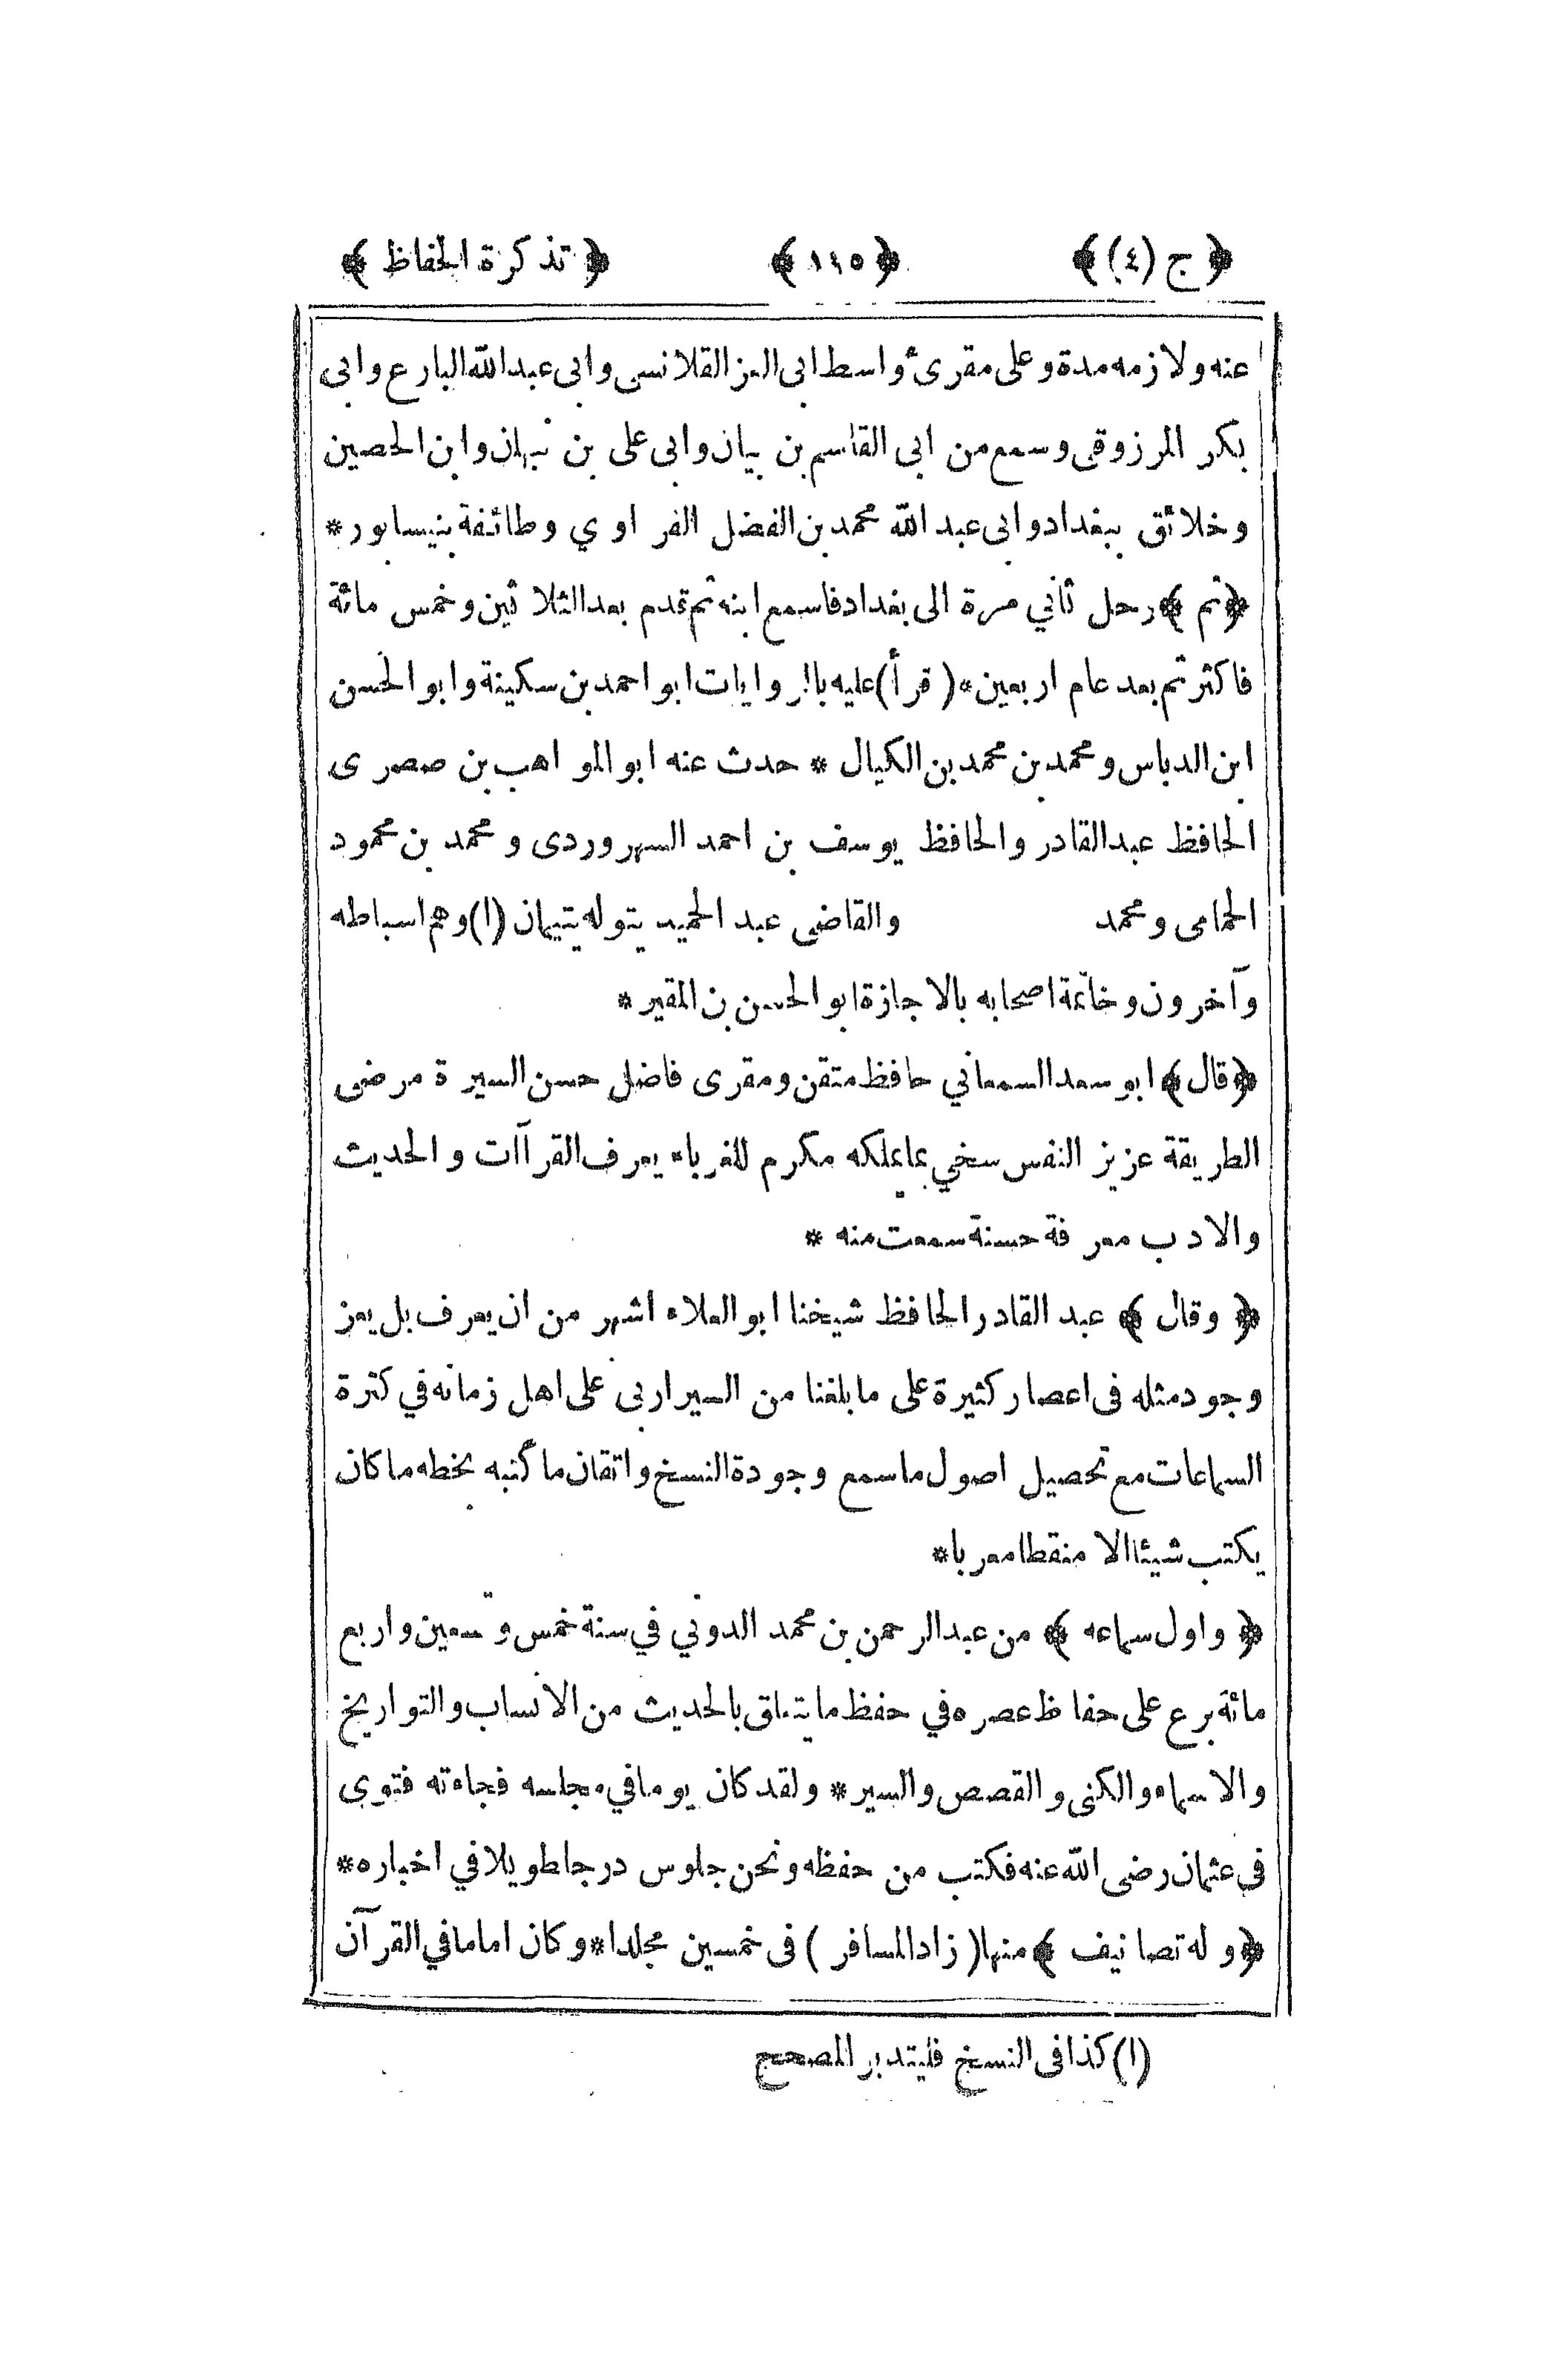 ﴿ ج (٤) ﴾ ﴿ ١١٥ ﴾ ﴿ تذكرة الحفاظ ﴾
عنه ولازمه مدة وعلى مقرئ واسط ابى العز القلانسى وابى عبد الله البارع وابى
بكر المرزوقى وسمع من ابى القاسم بن بيان وابى على بن نبهان وابن الحصين
وخلائق ببغداد وابى عبد الله محمد بن الفضل الفراوي وطائفة بنيسابور *
﴿ ثم ﴾ رحل ثاني مرة الى بغداد فاسمع ابنه ثم قدم بعد الثلاثين وخمس مائة
فاكثر ثم بعد عام اربعين * (قرأ) عليه بالروايات ابو احمد بن سكينة وابو الحسن
ابن الدباس ومحمد بن محمد بن الكيال * حدث عنه ابو المواهب بن صصرى
الحافظ عبد القادر والحافظ يوسف بن احمد السهروردى ومحمد بن محمود
الحمامى ومحمد والقاضى عبد الحميد يتوله يتيمان (١) وهم اسباطه
وآخرون وخاتمة اصحابه بالاجازة ابو الحسن بن المقير *
﴿ قال ﴾ ابو سعد السمعاني حافظ متقن ومقرى فاضل حسن السيرة مرضى
الطريقة عزيز النفس سخي بما يملكه مكرم للغرباء يعرف القراآت والحديث
والادب معرفة حسنة سمعت منه *
﴿ وقال ﴾ عبد القادر الحافظ شيخنا ابو العلاء اشهر من ان يعرف بل يعز
وجود مثله فى اعصار كثيرة على ما بلغنا من السير اربى على اهل زمانه في كثرة
السماعات مع تحصيل اصول ما سمع وجودة النسخ واتقان ما كتبه بخطه ما كان
يكتب شيئا الا منقطا معربا *
﴿ واول سماعه ﴾ من عبد الرحمن بن محمد الدوني في سنة خمس وتسعين واربع
مائة برع على حفاظ عصره في حفظ ما يتعلق بالحديث من الانساب والتواريخ
والاسماء والكنى والقصص والسير * ولقد كان يوما في مجلسه فجاءته فتوى
فى عثمان رضى الله عنه فكتب من حفظه ونحن جلوس درجا طويلا في اخباره *
﴿ وله تصانيف ﴾ منها (زاد المسافر) فى خمسين مجلدا * وكان اماما في القرآن
(١) كذا فى النسخ فليتدبر المصحح